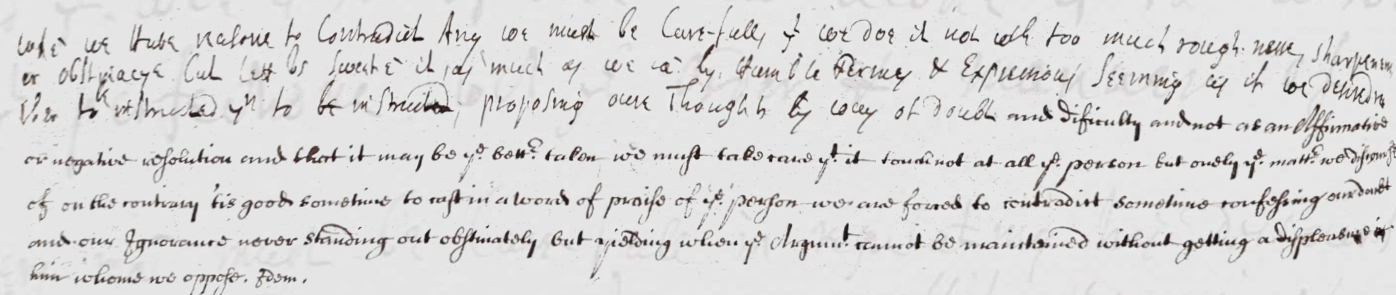 when we Have reasone to Contradict Any we must be Care-full, yt we doe it not wth too much rough-ness, sharpeness
or obstinacye but lett us sweetē it, as much as we cā by Humble Termes & Expressions seeming as if we desired
to be instructed, proposing oure Thoughts by way of doubt and dificulty and not as an Affirmative
or negative resolution and that it may be ye bettr taken we must take care yt it touch not at all ye person but onely ye mattr we discourse
of on the contrary 'tis good sometime to cast in a word of praise of ye person we are forced to contradict sometime confessing our doubt
and our Ignorance never standing out obstinately but yielding when ye Argumt cannot be maintained without getting a displeasure in
him whome we oppose. Idem.